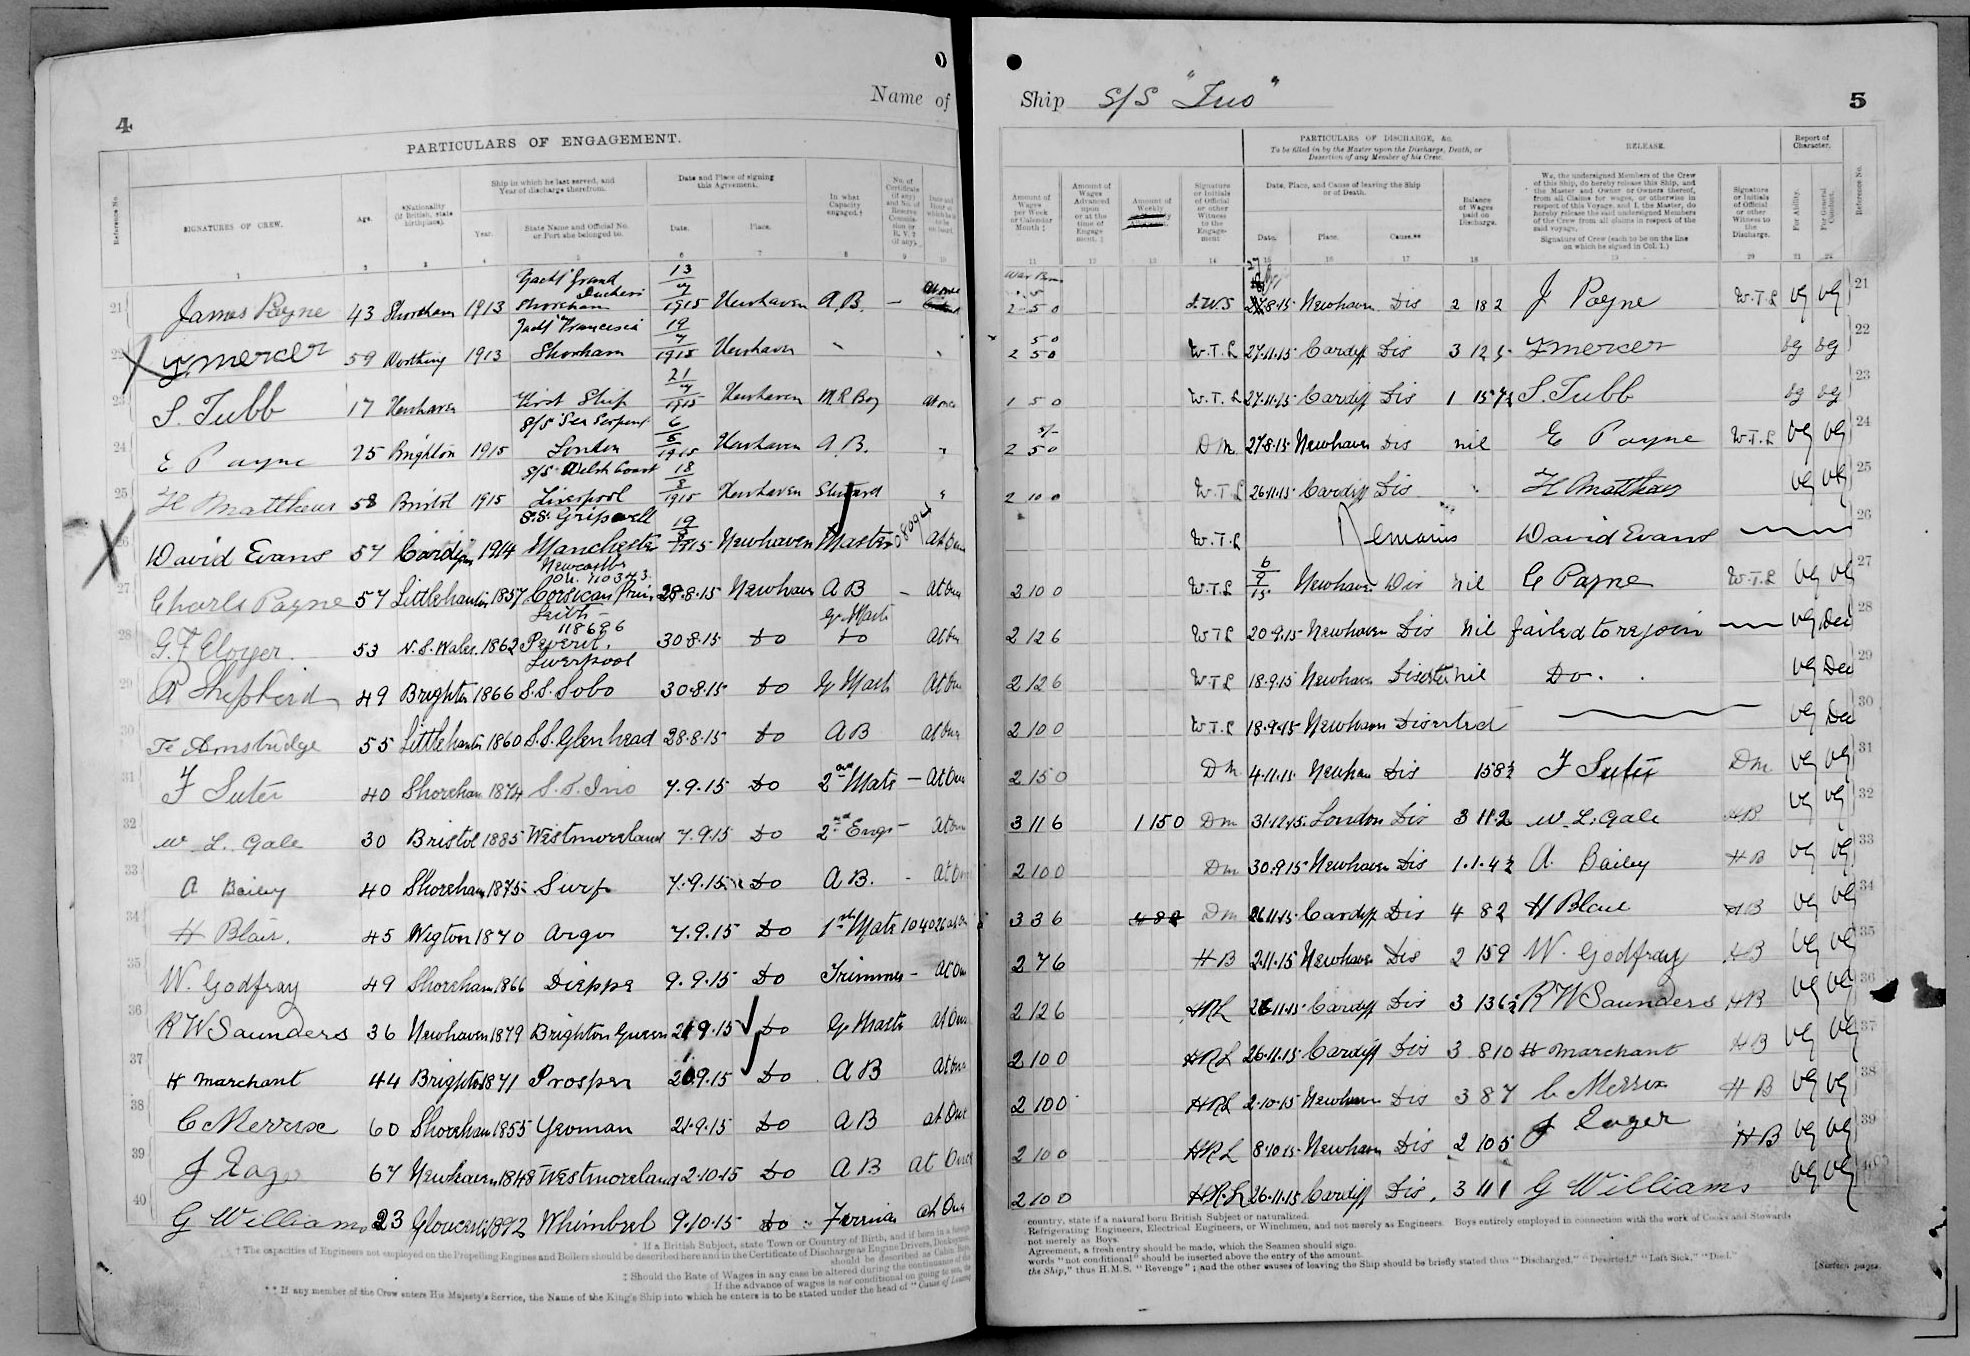 4
Name of
PARTICULARS OF ENGAGEMENT.
Reference No.
SIGNATURES OF CREW.
Age.
*Nationality (If British, state birthplace).
Ship in which he last served, and Year of discharge therefrom.
Year.
State Name and Official No. or Port she belonged to.
Date and Place of signing this Agreement.
Date.
Place.
In what Capacity engaged.†
1 2 3 4 5 6 7 8 9 10
21 James Payne 43 Shoreham 1913 Yacht Grand Duchess Shoreham 13/7/1915 Newhaven A.B. — At once
T Mercer 59 Worthing 1913 Yacht Francesca Shoreham 19/7/1915 Newhaven
23 S. Tubb 17 Newhaven First Ship 21/7/1915 Newhaven M R Boy At once
24 E Payne 25 Brighton 1915 S/S Sea Serpent London 6/8/1915 Newhaven A.B. "
25 H Matthews 58 Bristol 1915 S/S Welsh Coast Liverpool 18/8/1915 Newhaven Steward "
26 David Evans 57 Cardigan 1914 S.S. Gripwell Manchester 19/8/1915 Newhaven Master At Once
27 Charls Payne 57 Littlehampton 1857 Newcastle 110343 Corsican Prince 28.8.15 Newhaven A B — At Once
28 G. F Cloyer 53 N. S. Wales. 1862 Leith 118696 Peveril. 30.8.15 Do Qr Master Do At Once
29 R Shepherd 49 Brighton 1866 Liverpool S.S. Sobo 30.8.15 Do Qr Mast At Once
30 55 Littlehampton 1860 S.S. Glenhead 28.8.15 Do A B At Once
31 F Suter 40 Shoreham 1874 S.S. Ino 7.9.15 Do 2nd Mate — At Once
32 W L. Gale 30 Bristol 1885 Westmoreland 7.9.15 Do 2nd Engr — At Once
33 A Bailey 40 Shoreham 1875 Surf 7.9.15 Do A B. - At Once
34 H Blair. 45 Wigton 1870 Argo 7.9.15 Do 1st Mate At Once
35 W. Godfray 49 Shoreham 1866 Dieppe 9.9.15 Do Trimmer — At Once
36 R W Saunders 36 Newhaven 1879 Brighton Queen 21.9.15 Do Qr Master At Once
37 H Marchant 44 Brighton 1871 Prosper 21.9.15 Do A B At Once
38 C Merrix 60 Shoreham 1855 Yeoman 21.9.15 Do A B At Once
39 J Eager 67 Newhaven 1848 Westmoreland 2.10.15 Do A B At Once
40 G Williams 23 Gloucester 1892 Whimbrel 9.10.15 Do Fireman At Once
* If a British Subject, state Town or Country of Birth, and if born in a foreign
† The capacities of Engineers not employed on the Propelling Engines and Boilers should be described here and in the Certificate of Discharge as Engine Drivers, Donkeymen,
should be described as Cabin Boys,
‡ Should the Rate of Wages in any case be altered during the continuance of the
If the advance of wages is not conditional on going to sea, the
** If any member of the Crew enters His Majesty's Service, the Name of the King's Ship into which he enters is to be stated under the head of "Cause of Leaving
Ship S/S "Ino"
5
PARTICULARS OF DISCHARGE, &c.
To be filled in by the Master upon the Discharge, Death, or Desertion of any Member of his Crew.
RELEASE.
Report of Character.
Amount of Wages per Week or Calendar Month ‡
Amount of Wages Advanced upon or at the time of Engagement. ‡
Amount of Weekly
Signature or Initials of Official or other Witness to the Engagement
Date, Place, and Cause of leaving the Ship or of Death.
Date. Place. Cause.**
Balance of Wages paid on Discharge.
We, the undersigned Members of the Crew of this Ship, do hereby release this Ship, and the Master and Owner or Owners thereof, from all Claims for wages, or otherwise in respect of this Voyage, and I, the Master, do hereby release the said undersigned Members of the Crew from all claims in respect of the said voyage.
Signature of Crew (each to be on the line on which he signed in Col. 1.)
Signature or Initials of Official or other Witness to the Discharge.
For Ability.
For General Conduct.
Reference No.
11 12 13 14 15 16 17 18 19 20 21 22
2 5 0 27.8.15 Newhaven Dis 2 18 2 J. Payne W.T.L VG VG 21
2 5 0 W.T.L 27.11.15 Cardiff Dis 3 12 T Mercer 22
1 5 0 W.T.L 27.11.15 Cardiff Dis 1 S. Tubb 23
2 5 0 D M 27.8.15 Newhaven Dis nil E Payne W.T.L VG VG 24
2 10 0 W.T.L 26.11.15 Cardiff Dis H Matthews VG VG 25
W.T.L Remains David Evans 26
2 10 0 W.T.L 6/9/15 Newhaven Dis nil C Payne W.T.L VG VG 27
2 12 6 W T L 20.9.15 Newhaven Dis Nil failed to rejoin VG Dec 28
2 12 6 W T L 18.9.15 Newhaven nil Do. VG Dec 29
2 10 0 W.T.L 18.9.15 Newhaven Deserted VG Dec 30
2 15 0 D M 4.11.15 Newhaven Dis 15 8½ F Suter D M VG VG 31
3 11 6 1 15 0 D M 31.12.15 London Dis 3 11 2 W. L. Gale H B VG VG 32
2 10 0 D M 30.9.15 Newhaven Dis 1.1.4½ A. Bailey H B VG VG 33
3 3 6 D M 26.11.15 Cardiff Dis 4 8 2 H Blair H B VG VG 34
2 7 6 H B 2.11.15 Newhaven Dis 2 15 9 W. Godfray H B VG VG 35
2 12 6 HRL 26.11.15 Cardiff Dis 3 13 6½ R W Saunders H B VG VG 36
2 10 0 HRL 26.11.15 Cardiff Dis 3 8 10 H Marchant H B VG VG 37
2 10 0 HRL 2.10.15 Newhaven Dis 3 8 7 C Merrix H B VG VG 38
2 10 0 HRL 8.10.15 Newhaven Dis 2 10 5 J Eager H B VG VG 39
2 10 0 H.R.L 26.11.15 Cardiff Dis. 3 11 1 G Williams VG VG 40
country, state if a natural born British Subject or naturalized.
Refrigerating Engineers, Electrical Engineers, or Winchmen, and not merely as Engineers. Boys entirely employed in connection with the work of Cooks and Stewards
not merely as Boys.
Agreement, a fresh entry should be made, which the Seamen should sign.
words "not conditional" should be inserted above the entry of the amount.
the Ship," thus H.M.S. "Revenge"; and the other causes of leaving the Ship should be briefly stated thus "Discharged," "Deserted," "Left Sick," "Died."
[Sixteen pages.